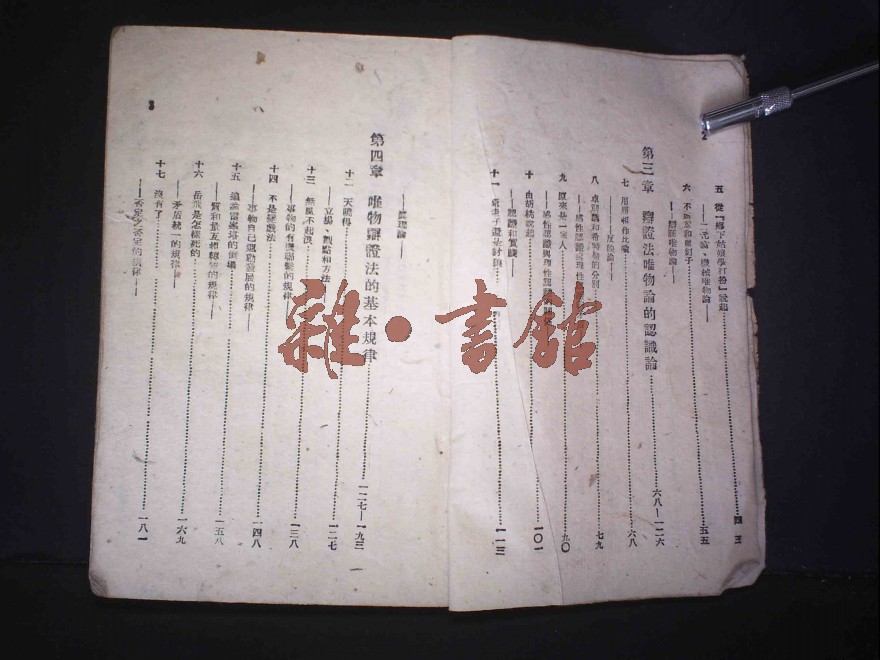 2
五 從「鄉下姑娘學打扮」說起……四三
——二元論、機械唯物論——
六 釘子……五五
——辯證唯物論——
第三章 辯證法唯物論的認識論……六八—一二六
七 用照相作比喻……六八
——反映論——
八 卓別麟和希特勒的分別……七九
——感性認識與理性
九 原來是一家人……九〇
——感性認識與理性認識
十 由胡桃說起……一〇一
——認識和實踐——
十一 ……一一三
3
——真理論——
第四章 唯物辯證法的基本規律……一二七—一九三
十二 天曉得……一二七
——立場、觀點和方法——
十三 無風不起浪……一三八
——事物的有機聯繫的規律——
十四 不是變戲法……一四八
——事物自己運動發展的規律——
十五 追論雷峯塔的倒塌……一五八
——質和量互相轉變的規律——
十六 岳飛是怎樣死的……一六九
——矛盾統一的規律——
十七 沒有了……一八一
——否定之否定的規律——
雜·書館